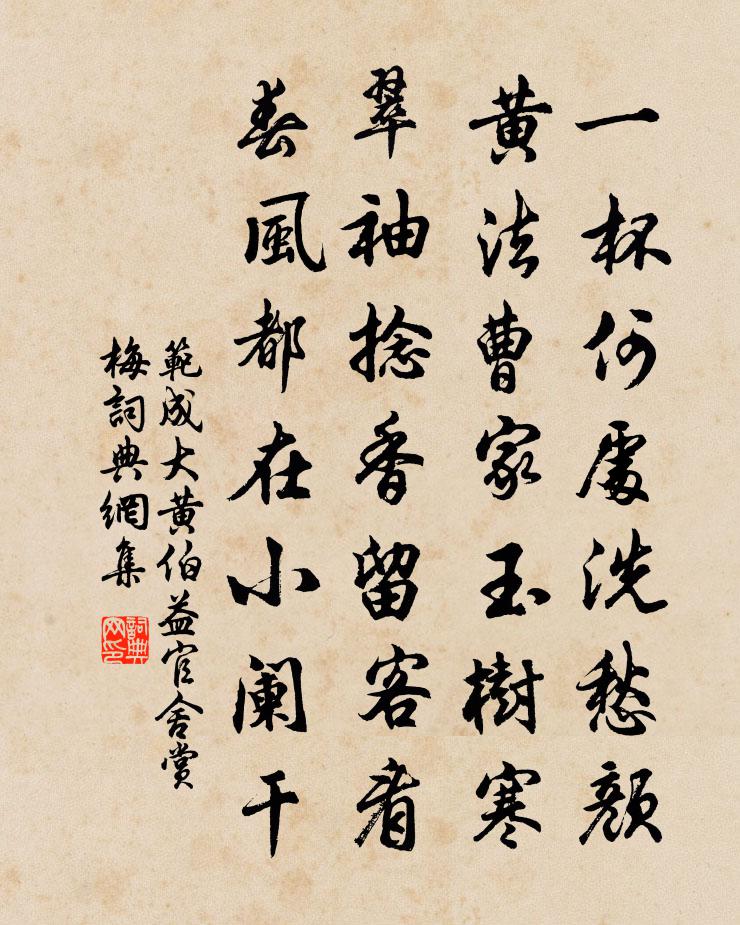 一杯何處洗愁顏
黃法曹家玉樹寒
翠袖捻香留客看
春風都在小闌干
範成大黃伯益官舍賞
梅詞典網集
詞典
网印